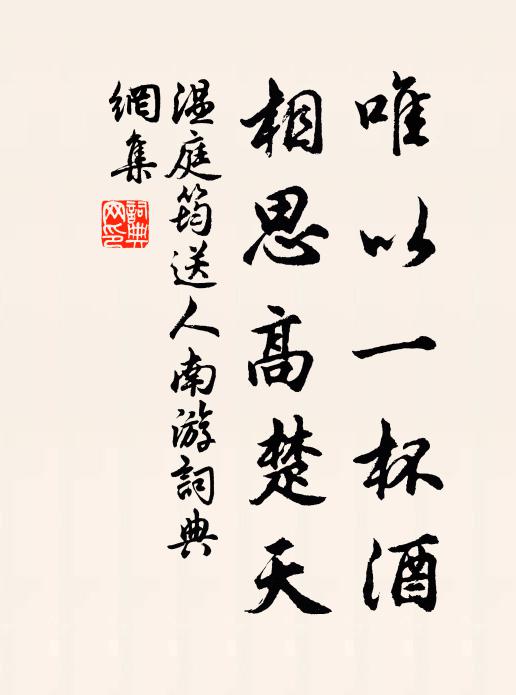 唯以一杯酒
相思高楚天
温庭筠送人南游詞典
網集
詞典網印